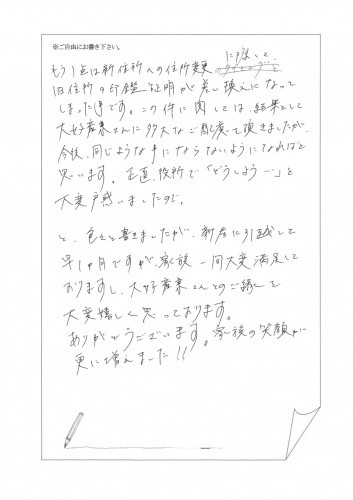 ※ご自由にお書き下さい。
もう1点は新住所への住所変更に際して
旧住所の印鑑証明が差し換えになって
しまった事です。この件に関しては、結果として
大好産業さんに多大なご配慮を頂きましたが、
今後、同じような事にならないようになればと
思います。正直、役所で「どうしよう…」と
大変戸惑いましたので。
と、色々と書きましたが、新居に引越して
早1ヶ月ですが、家族一同大変満足して
おりますし、大好産業さんとのご縁を
大変嬉しく思っております。
ありがとうございます。家族の笑顔が
更に増えました!!